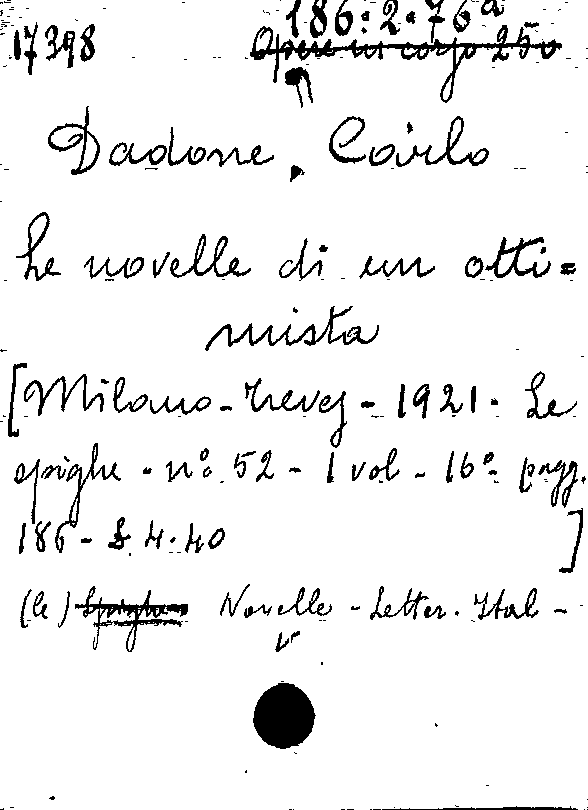 186:2.76a
17398 Opere in corso 250
Dadone, Carlo
Le novelle di un otti=
mista
[Milano-Treves-1921. Le
spighe - n.º 52 - 1 vol - 16º- pagg.
186 - £ 4.40 ]
(le) Spighe Novelle - Letter. Ital -